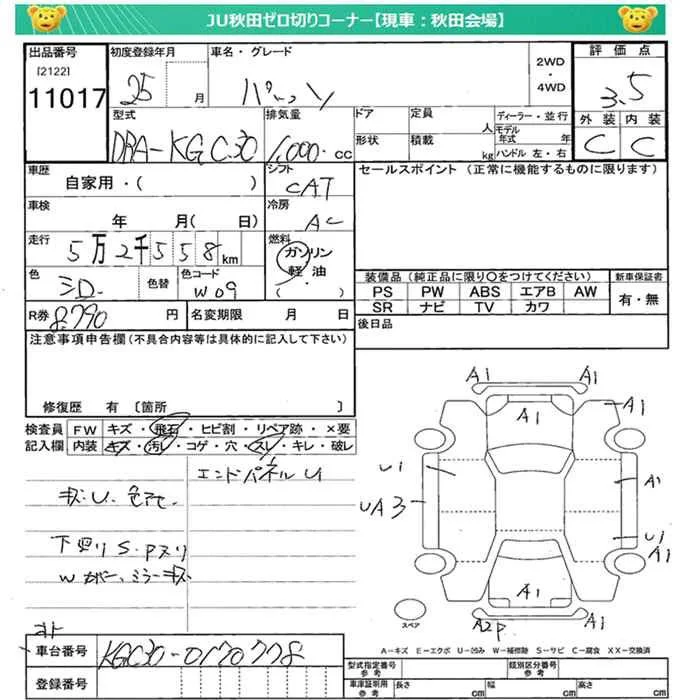 JU秋田ゼロ切りコーナー【現車：秋田会場】
出品番号 初度登録年月 車名・グレード 2WD・4WD 評価点
[2122]
11017 25 月 パッソ 3.5
型式 排気量 ドア 定員 人 ディーラー・並行 外装 内装
DBA-KGC30 1,000 cc 形状 積載 kg モデル年式 年 ハンドル 左・右 C C
車歴 シフト セールスポイント (正常に機能するものに限ります)
自家用・( ) CAT
車検 冷房
年 月( 日) AC
走行 燃料
5万2千558km ガソリン
軽・油
( )
色 色替 色コード
シロ W09
装備品 (純正品に限り○をつけてください) 新車保証書
PS PW ABS エアB AW 有・無
SR ナビ TV カワ
R券 8,790 円 名変期限 月 日 後日品
注意事項申告欄 (不具合内容等は具体的に記入して下さい)
修復歴 有 〔箇所 〕
検査員 FW キズ・飛石・ヒビ割・リペア跡・×要
記入欄 内装 キズ・汚レ・コゲ・穴・スレ・キレ・破レ
エンドパネルU
キズ.U. 色アセ.
下廻り S.Pヌリ
Wカバー、ミラーキズ
A1 A1
A1 A1
U1 A1
UA3
U1
A1
A1
A2P A1
スペア
A－キズ E－エクボ U－凹み W－補修跡 S－サビ C－腐食 XX－交換済
車台番号 KGC30-0170778
登録番号
型式指定番号 参考 類別区分番号 参考
車庫証明用 参考 長さ cm 幅 cm 高さ cm